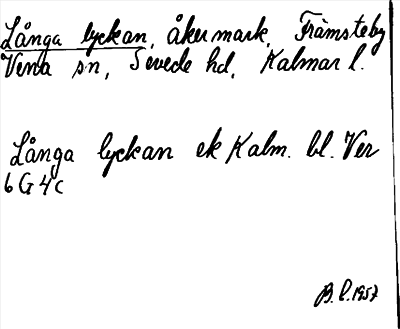 Långa lyckan, åkermark, Främsteby
Vena sn, Sevede hd, Kalmar l.
Långa lyckan ek Kalm. bl. Ver
6 G 4 c
B. L. 1957